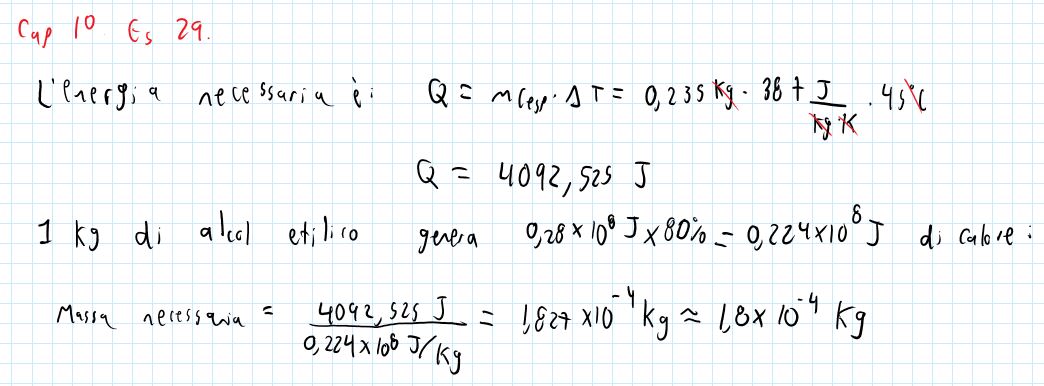 Cap 10 Es 29.
L'energia necessaria è: Q = m c_esp · ΔT = 0,235 kg · 387 J/(kg K) · 45 °C
Q = 4092,525 J
1 kg di alcol etilico genera 0,28 × 10⁸ J × 80% = 0,224 × 10⁸ J di calore:
Massa necessaria = 4092,525 J / 0,224 × 10⁸ J/kg = 1,827 × 10⁻⁴ kg ≈ 1,8 × 10⁻⁴ kg